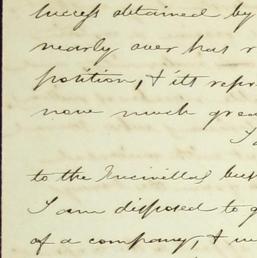 success obtained by
nearly over has r
position, & its repre
now much grea
I a
to the
I am disposed to g
of a company, & w